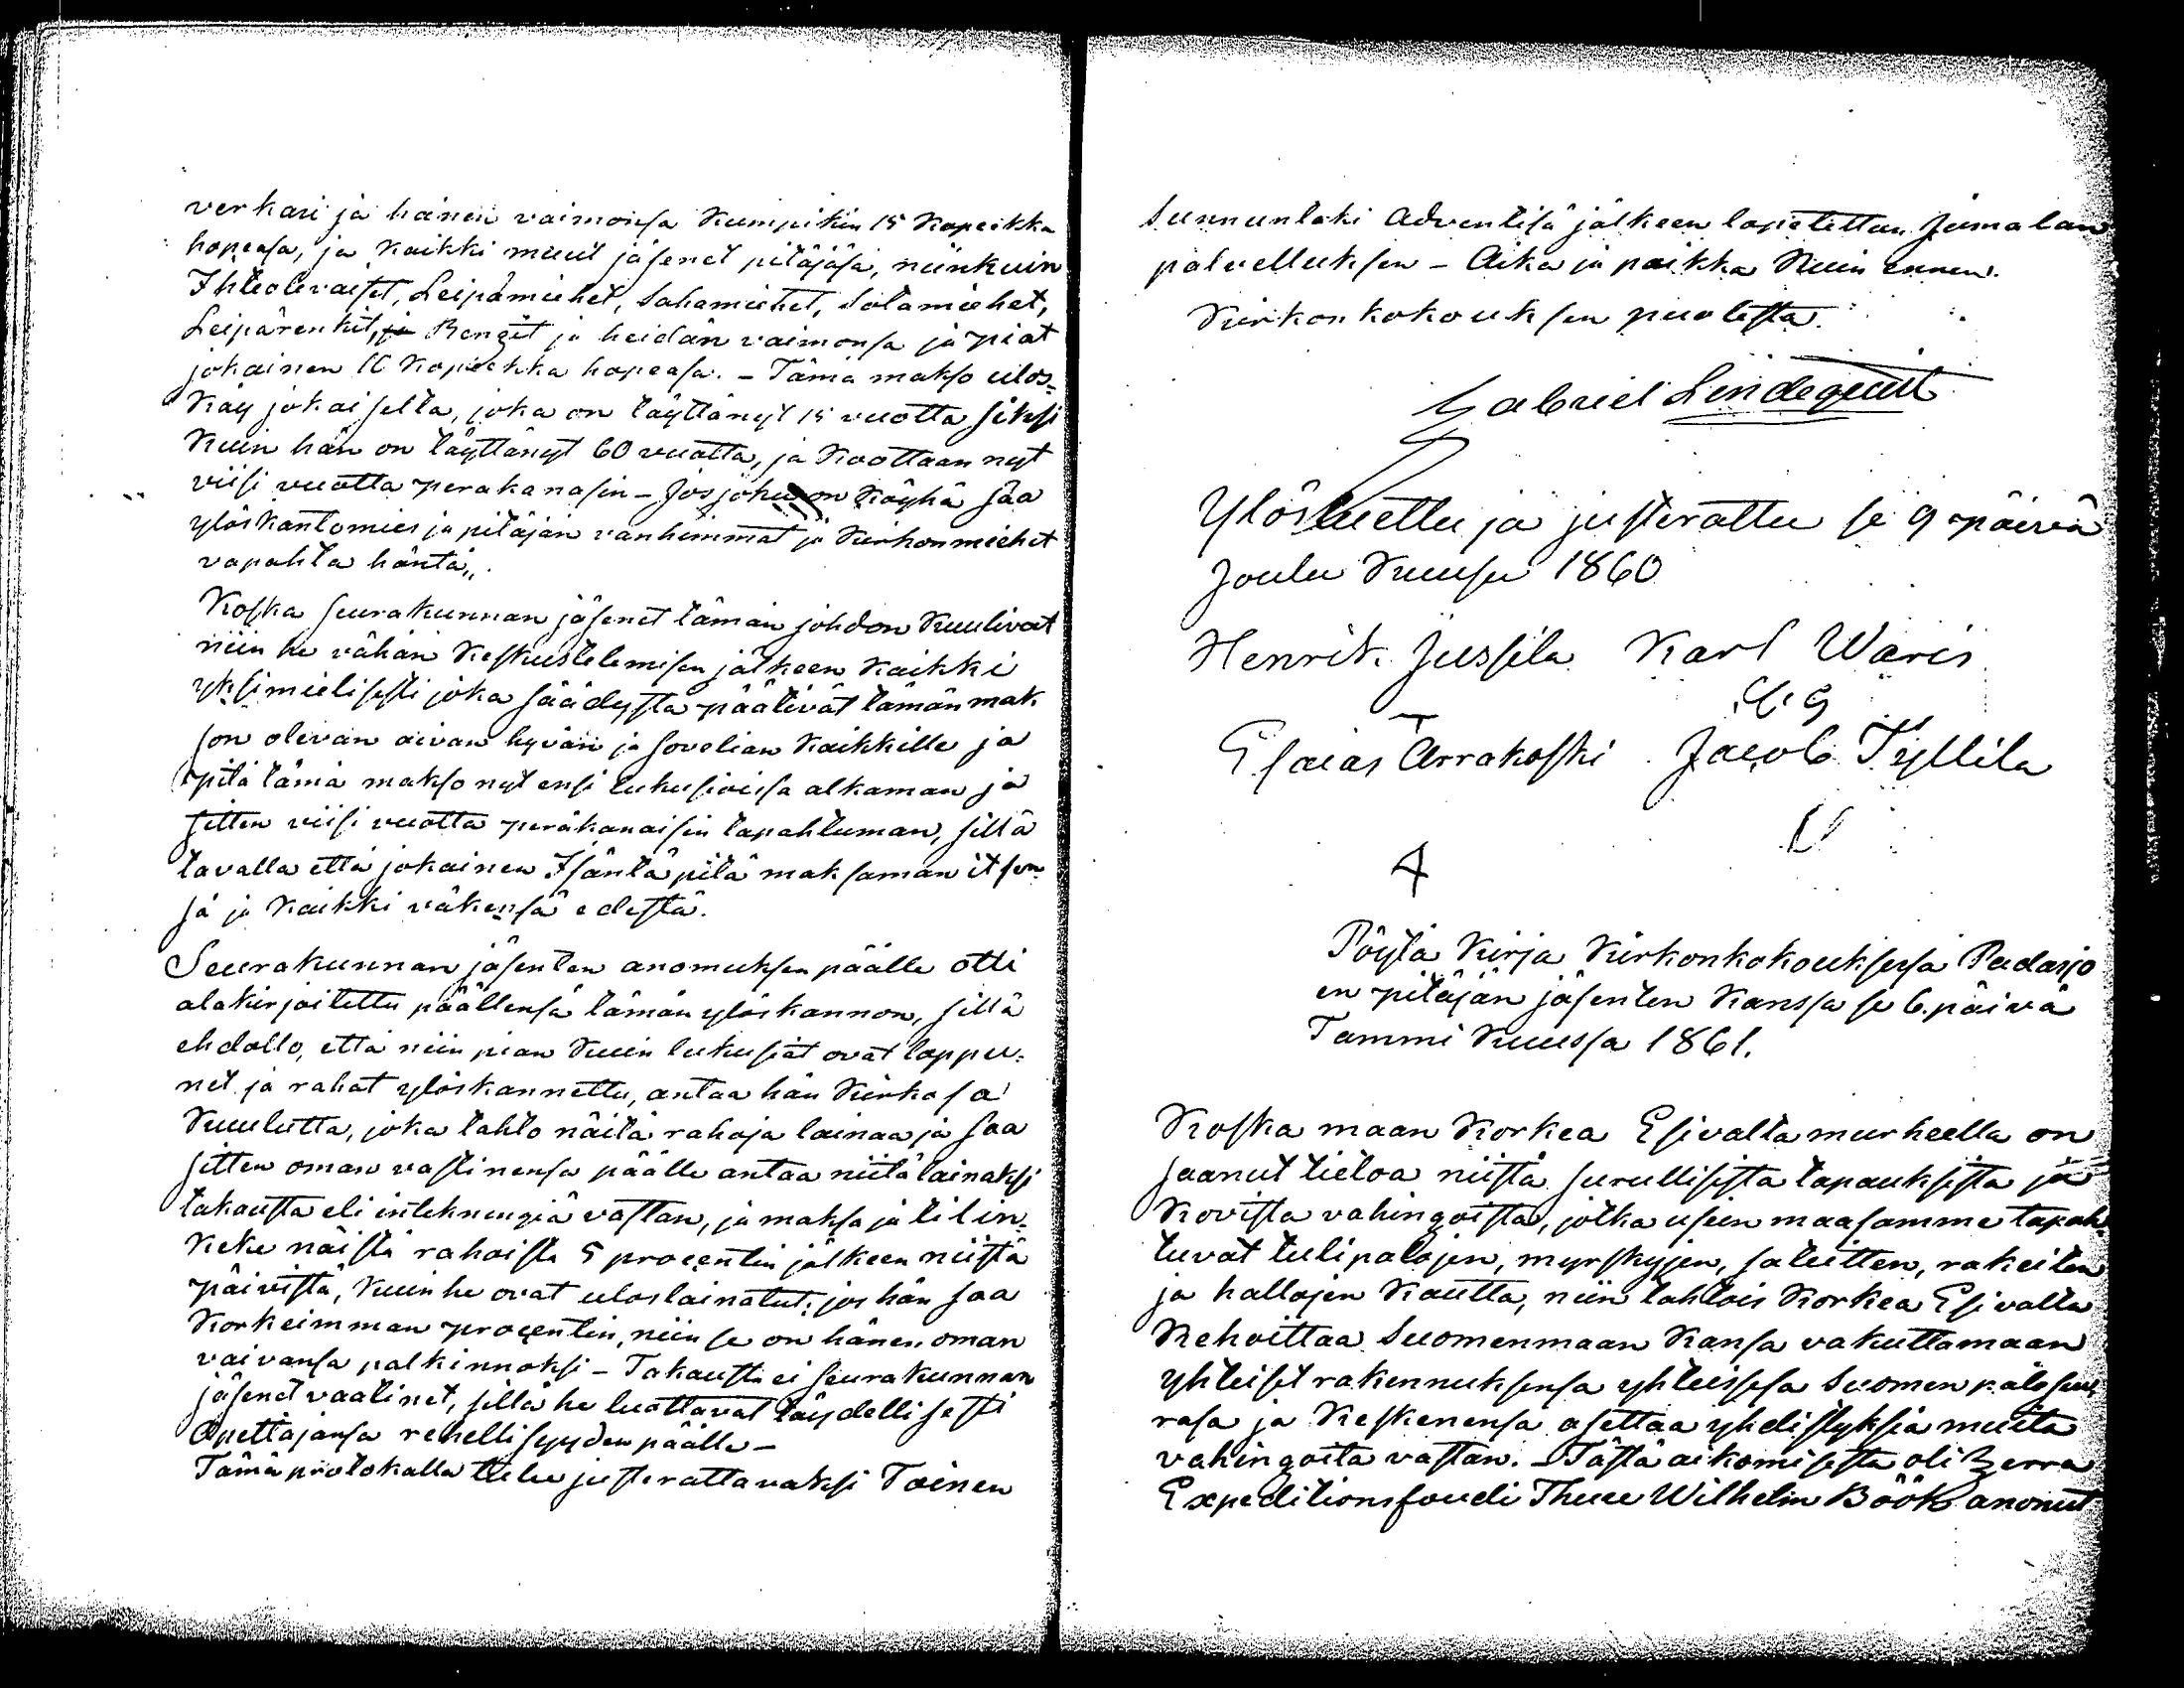 verkari ja hänen vaimonsa Kumpikin 15 Kopeikka
hopeasa, ja Kaikki muut jäsenet pitäjäsä, niinkuin
Ihteolevaiset, Leipämiehet, Sahamiehet, Sotamiehet,
Leipärenkit, ja Rengit ja heidän vaimonsa ja piat
jokainen 10 Kopeekka hopeasa. - Tämä makso ulos-
Käy jokaiselta, joka on täyttänyt 15 vuotta siksi
Kuin hän on täyttänyt 60 vuotta, ja Koottaan nyt
viisi vuotta perakanasin - Jos joku on Köyhä saa
ylöskantomies ja pitäjän vanhimmat ja Kirkonmiehet
vapahta häntä„.
Koska seurakunnan jäsenet tämän johdon Kuulivat
niin he vähän Keskustelemisen jälkeen Kaikki
yksimielisesti joka säädystä päätivät tämän mak
son olevan aivan hyvän ja sovelian Kaikkille ja
pitä tämä makso nyt ensi lukusioisa alkaman ja
sitten viisi vuotta peräkanaisin tapahtuman, sillä
tavalla että jokainen Isäntä pitä maksaman itsen
sä ja Kaikki väkensä edestä.
Seurakunnan jäsenten anomuksen päälle otti
alakirjoitettu päällensä tämän ylöskannon, sillä
ehdollo, että niin pian Kuin lukusiat ovat loppu-
net ja rahat ylöskannettu, antaa hän Kirkosa
Kuulutta, joka tahto näitä rahoja lainaa ja saa
sitten oman vastinensa päälle antaa niitä lainaksi
takausta eli intekningiä vastan, ja maksa ja tilin-
Keke näistä rahoista 5 procentin jälkeen niistä
päivistä, Kuin he ovat uloslainatut; jos hän saa
Korkeimman procentin, niin se on hänen oman
vaivansa palkinnoksi - Takausta ei Seurakunnan
jäsenet vaatinet, sillä he luottavat täydellisesti
Opettajansa rehellisyyden päälle -
Tämä protokalla tulee justerattavaksi Toinen
Sunnuntaki Adventisä jälkeen lopetettun Jumalan
palvelluksen - Aika ja paikka Kuin ennen.
Kirkonkokouksen puolesta.
Gabriel Lindequist
Ylösluettu ja justerattu se 9 päivä
Joulu Kuusa 1860
Henrik Jussila Karl Waris
Esaias Arrakoski Jacob Tyllilä
Pöytä Kirja Kirkonkokouksesa Padasjo
en pitäjän jäsenten Kanssa se 6. päivä
Tammi Kuussa 1861.
Koska maan Korkea Esivalta murheella on
saanut tietoa niistä surullisista tapauksista ja
Kovista vahingoista, jotka usein maasamme tapah
tuvat tulipalojen, myrskyjen, sateitten, rakeiten
ja hallojen Kautta, niin tahtois Korkea Esivalta
Kehoittaa Suomenmaan Kansa vakuttamaan
yhteiset rakennuksensa yhteisesä Suomen paloseu
rasa ja Keskenensa asettaa yhdistyksiä muita
vahingoita vastan. - Tästä aikomisesta oli Herra
Expeditionsfoudi Thure Wilhelm Böök anonut